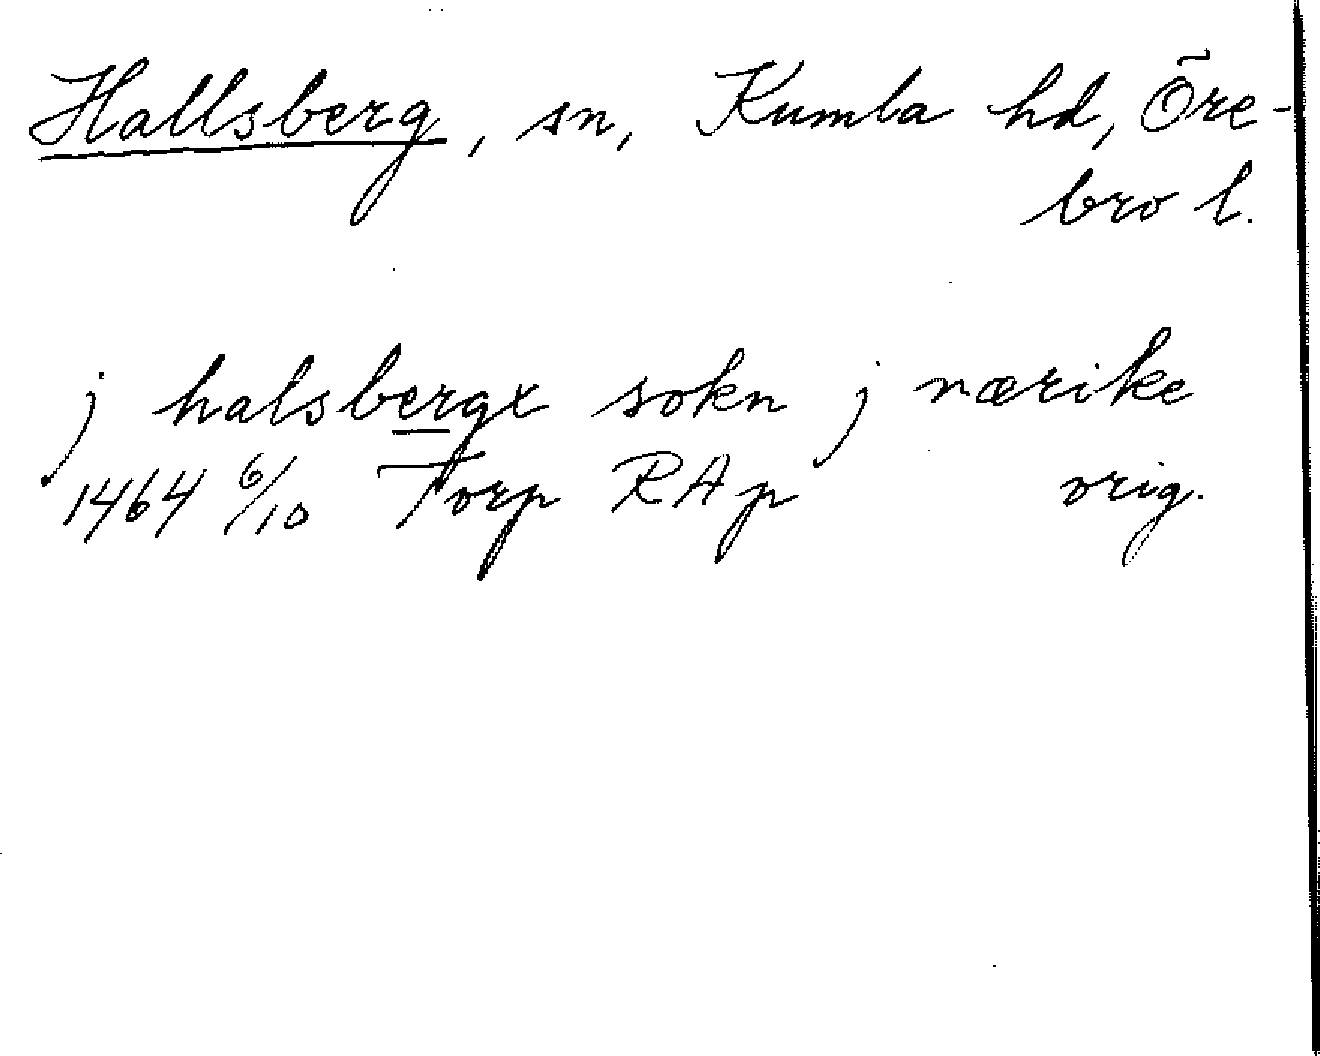 Hallsberg, sn, Kumla hd, Öre-
bro l.
j halsbergx sokn j nærike
1464 6/10 Torp RAp orig.